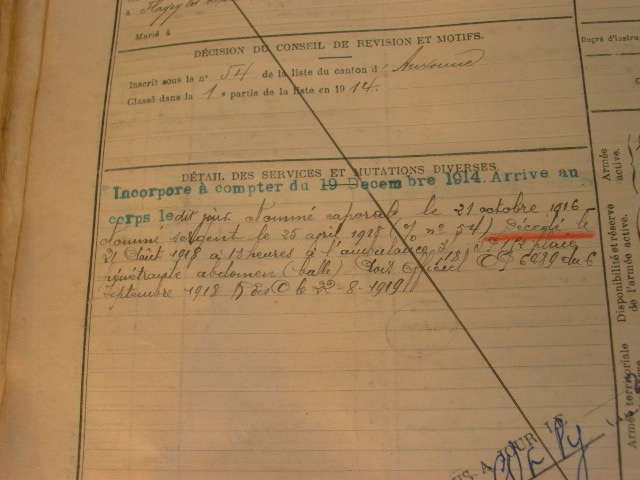 à Flagey les
Marié à
DÉCISION DU CONSEIL DE REVISION ET MOTIFS.
Inscrit sous le n° 54 de la liste du canton d'Auxonne
Classé dans la 1e partie de la liste en 1914.
DÉTAIL DES SERVICES ET MUTATIONS DIVERSES.
Incorporé à compter du 19 Decembre 1914. Arrive au
corps le dit jour. Nommé caporal le 21 octobre 1916
Nommé sergent le 25 avril 1918 % n° 54) Décédé le
21 Août 1918 à 12 heures à l'ambulance 2/18) plaie
pénétrante abdomen (balle) Avis Officiel 6989 du 6
Septembre 1918 le 22-8-1919
Degré d'instru
Armée
active.
Disponibilité et réserve
de l'armée active.
Armée territoriale
A JOUR LE